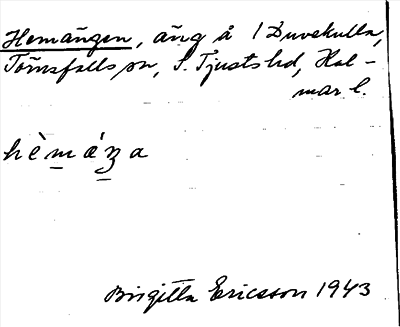 Hemängen, äng å 1 Duvekulla,
Törnsfalls sn, S. Tjusts hd, Kal-
mar l.
hèmáŋa
Birgitta Ericsson 1943